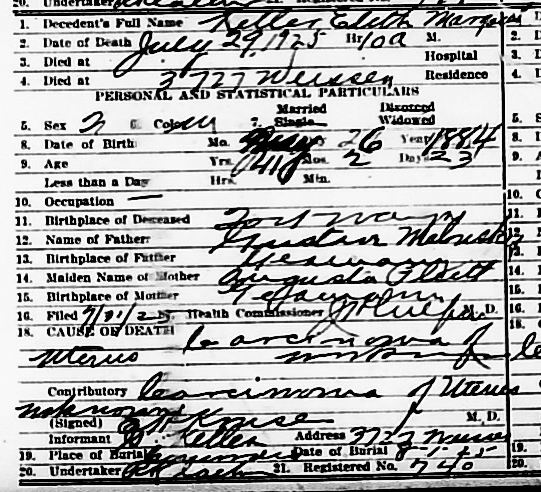 20. Undertaker
1. Decedent's Full Name Keller Edith
2. Date of Death July 29, 1925 Hr 10 a M.
3. Died at Hospital
4. Died at 3727 Weisser Residence
PERSONAL AND STATISTICAL PARTICULARS
Married Divorced
5. Sex 6. Color W 7. Single Widowed
8. Date of Birth Mo. Day 26 Year 1884
9. Age Yrs. 41 Mos. 2 Days 23
Less than a Day Hrs. Min.
10. Occupation —
11. Birthplace of Deceased Fort Wayne
12. Name of Father Gustav
13. Birthplace of Father Germany
14. Maiden Name of Mother Augusta
15. Birthplace of Mother Germany
16. Filed 7/31/25 Health Commissioner M. D.
18. CAUSE OF DEATH Carcinoma of
Uterus
Contributory Carcinoma of Uterus
(Signed) Kruse M. D.
Informant Keller Address 3727 Weisser
19. Place of Burial Date of Burial 8-1-25
20. Undertaker 21. Registered No. 740